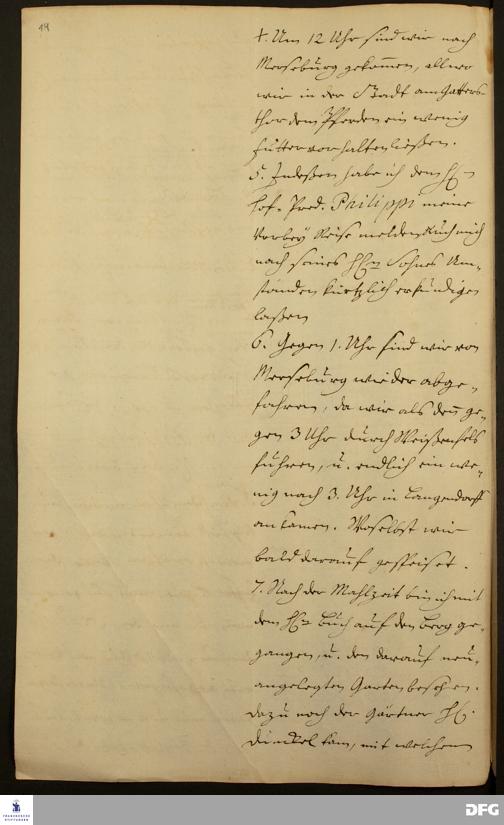 44
4. Um 12 Uhr sind wir nach
Merseburg gekommen, allwo
wir in der Stadt am Gotters-
thor dem Pferden ein wenig
Futter vorhalten ließen.
5. Indeßen habe ich dem H.
Hof-Pred. Philippi meine
Vorbey Reise melden, auch mich
nach seines HEn Sohnes Um-
ständen kürtzlich erkundigen
laßen
6. Gegen 1. Uhr sind wir von
Merseburg wieder abge-
fahren, da wir als den ge-
gen 3 Uhr durch Weißenfels
fuhren, u. endlich ein we-
nig nach 3. Uhr in Langendorff
ankamen. Woselbst wir
bald darauf gespeiset.
7. Nach der Mahlzeit bin ich mit
dem HEn Buch auf den Berg ge-
gangen, u. den darauf neu-
angelegten Garten besehen.
Dazu noch der Gärtner H.
kam, mit welchem
FRANCKESCHE
STIFTUNGEN
DFG